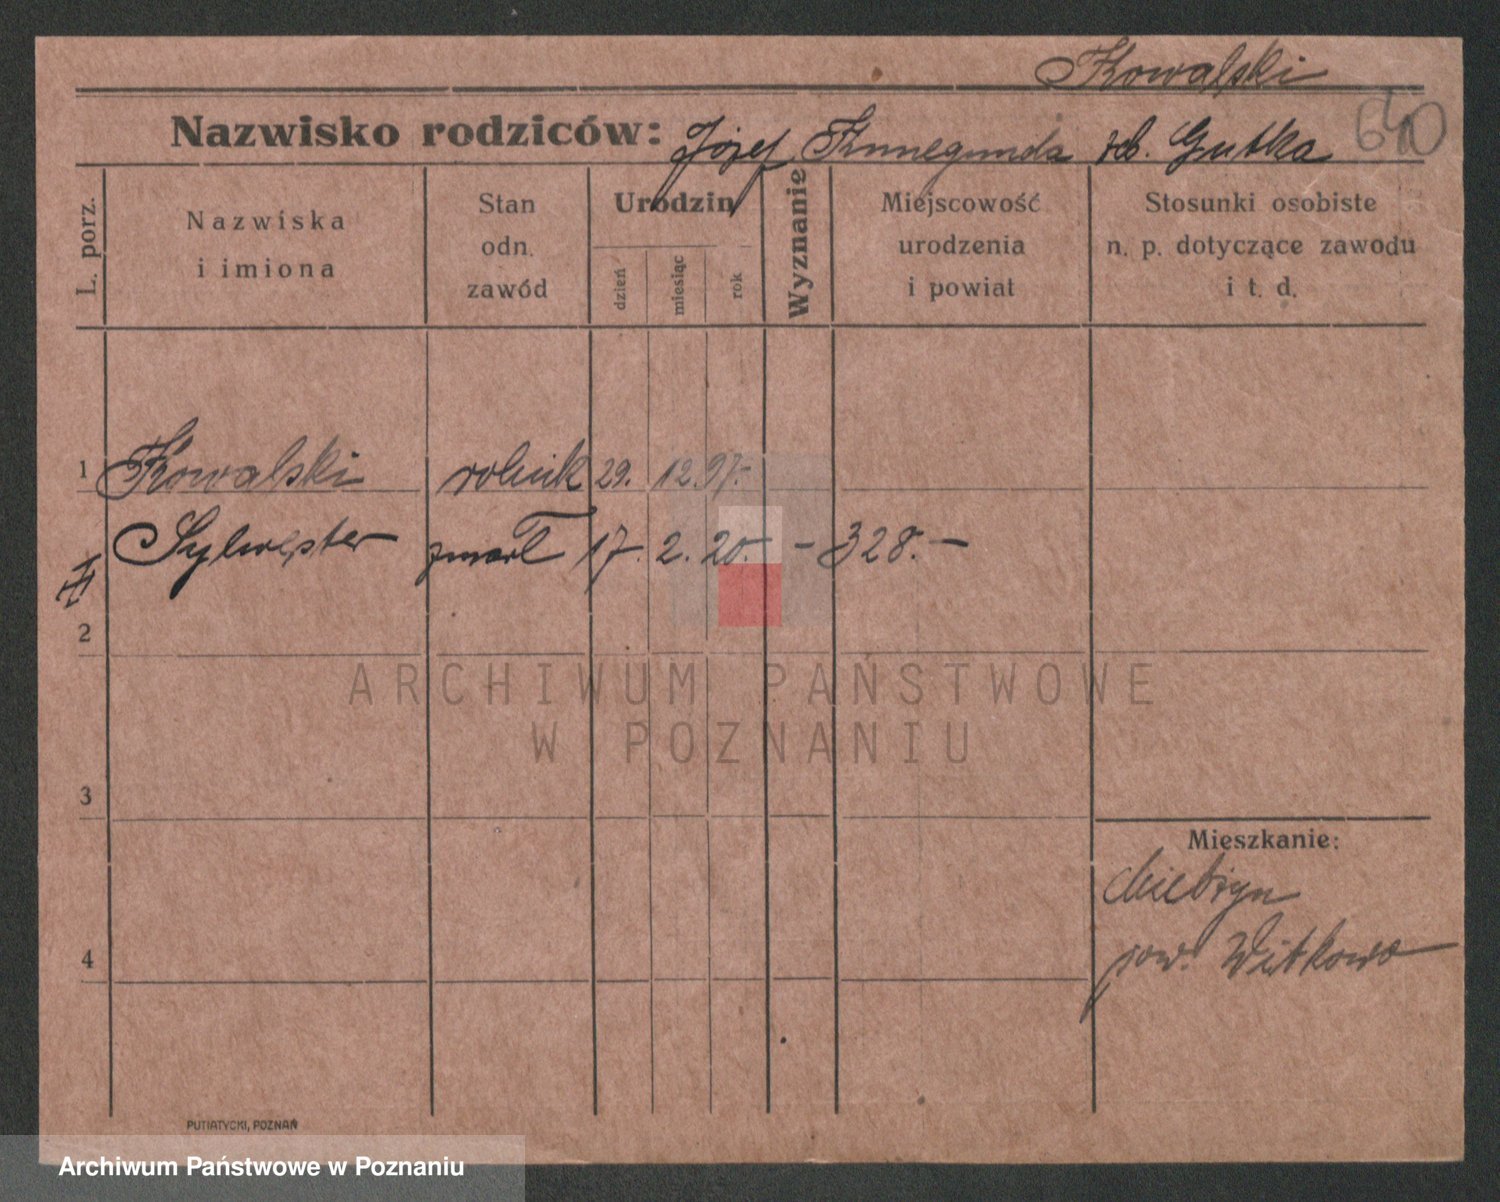 Kowalski
640
Nazwisko rodziców: Józef Kunegunda zd. Gutka
L. porz.
Nazwiska
i imiona
Stan
odn.
zawód
Urodzin
dzień
miesiąc
rok
Wyznanie
Miejscowość
urodzenia
i powiat
Stosunki osobiste
n. p. dotyczące zawodu
i t. d.
1 Kowalski rolnik 29. 12. 97.-
Sylwester zmarł 17. 2. 20. - 328.-
2
ARCHIWUM PAŃSTWOWE
W POZNANIU
3
Mieszkanie:
pow. Witkowo
4
PUTIATYCKI, POZNAŃ
Archiwum Państwowe w Poznaniu